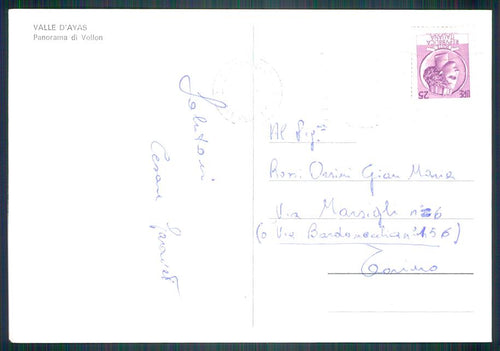 VALLE D'AYAS
Panorama di Vollon
LIRE 25
REPUBBLICA
ITALIANA
Saluti
Cesare
Al Sig.
Rossi Orsini Gian Maria
Via Marsigli n° 6
(o Via Bardonecchia n° 156)
Torino